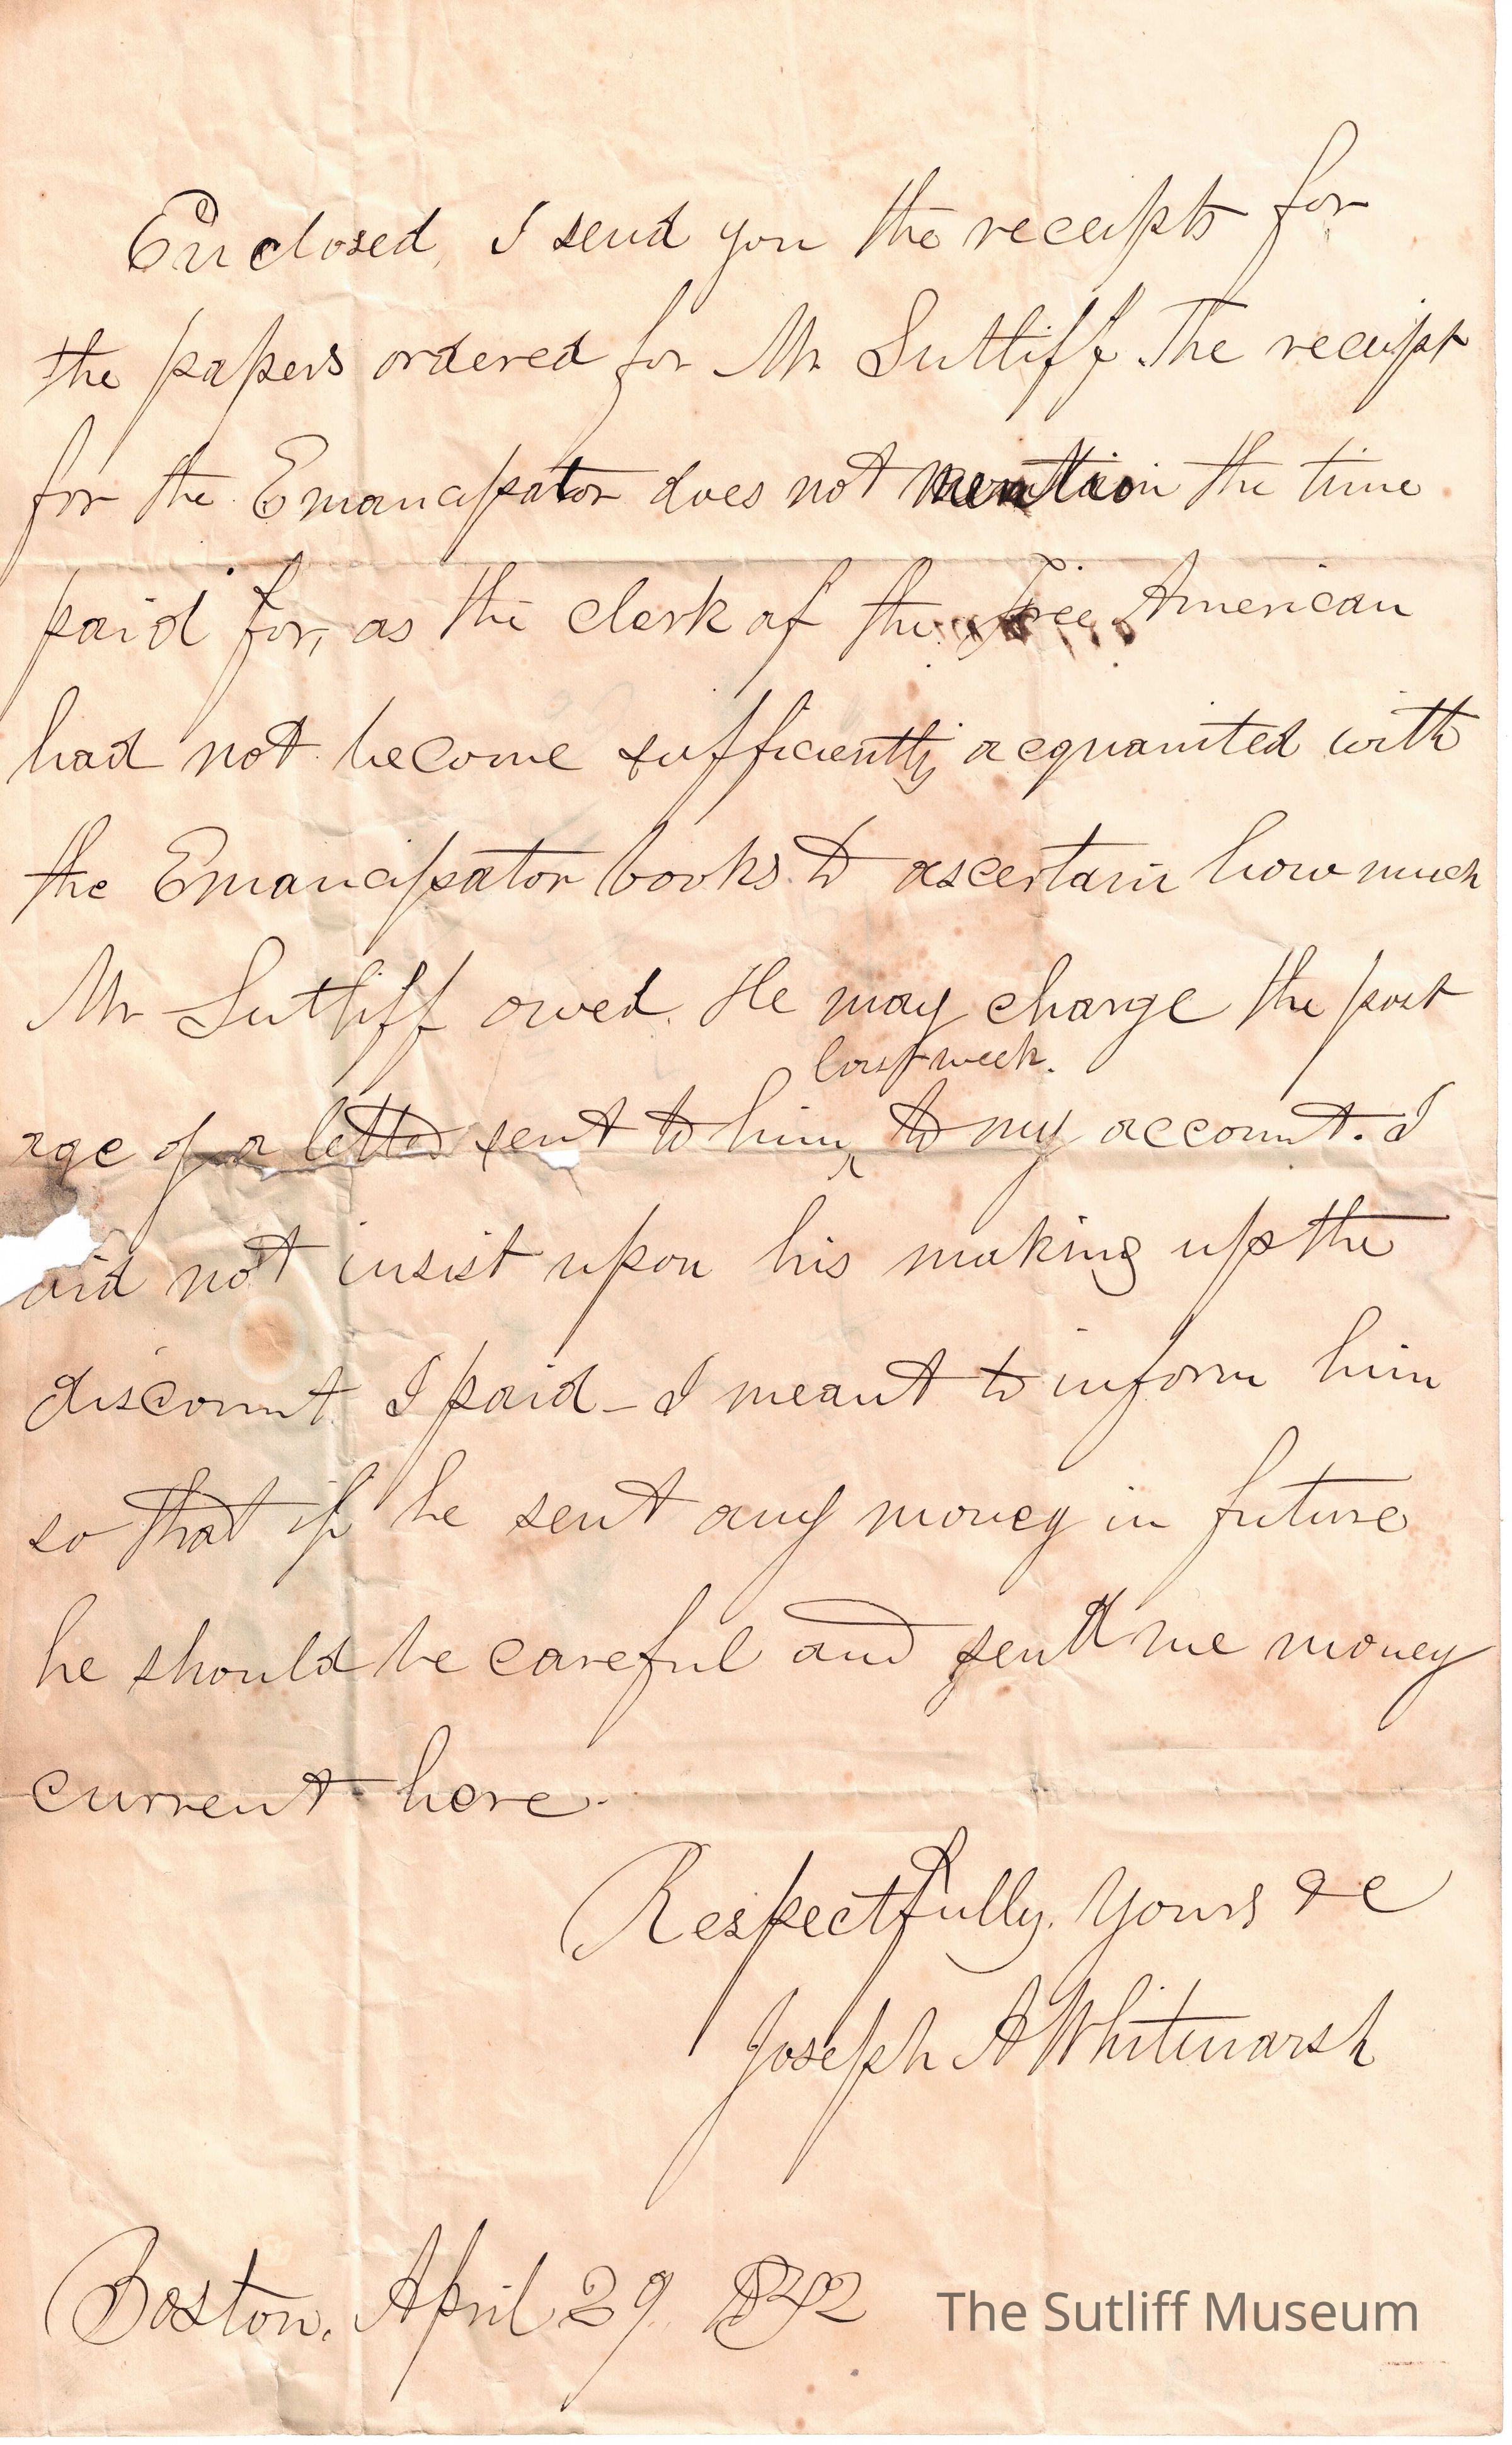 Enclosed, I send you the receipts for
the papers ordered for Mr Sutliff. The receipt
for the Emancipator does not mention the time
paid for, as the clerk of the Free American
had not become sufficiently acquainted with
the Emancipator books to ascertain how much
Mr Sutliff owed. He may charge the post
last week.
age of a letter sent to him ^ to my account. I
did not insist upon his making up the
discount I paid – I meant to inform him
so that if he sent any money in future
he should be careful and send me money
current here.
Respectfully, Yours &c
Joseph A Whitmarsh
Boston, April 29, 1842
The Sutliff Museum